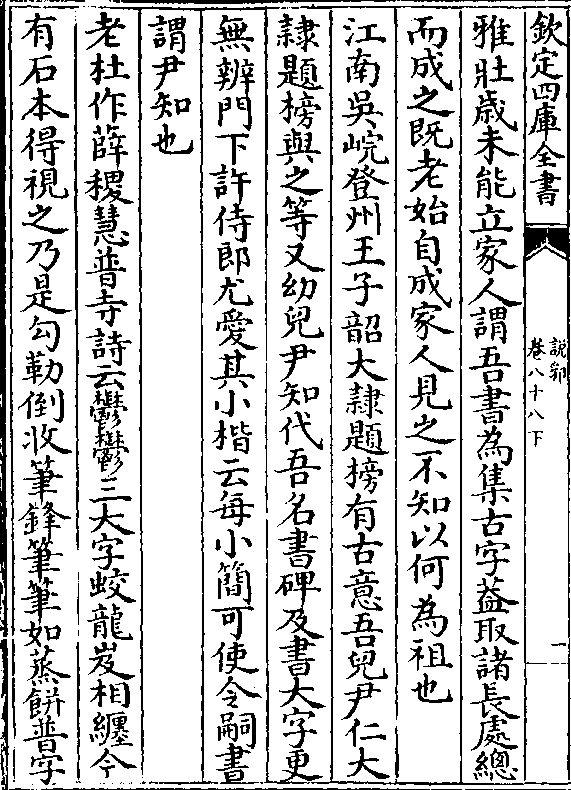 欽定四庫全書
說郛
卷八十八下
一
雅壯歳未能立家人謂吾書為集古字葢取諸長處總
而成之既老始自成家人見之不知以何為祖也
江南吳㟒登州王子韶大隷題榜有古意吾兒尹仁大
隷題榜與之等又幼兒尹知代吾名書碑及書大字更
無辨門下許侍郎尤愛其小楷云每小簡可使令嗣書
謂尹知也
老杜作薛稷慧普寺詩云鬱鬱三大字蛟龍岌相纏今
有石本得視之乃是勾勒倒收筆鋒筆筆如蒸餅普字